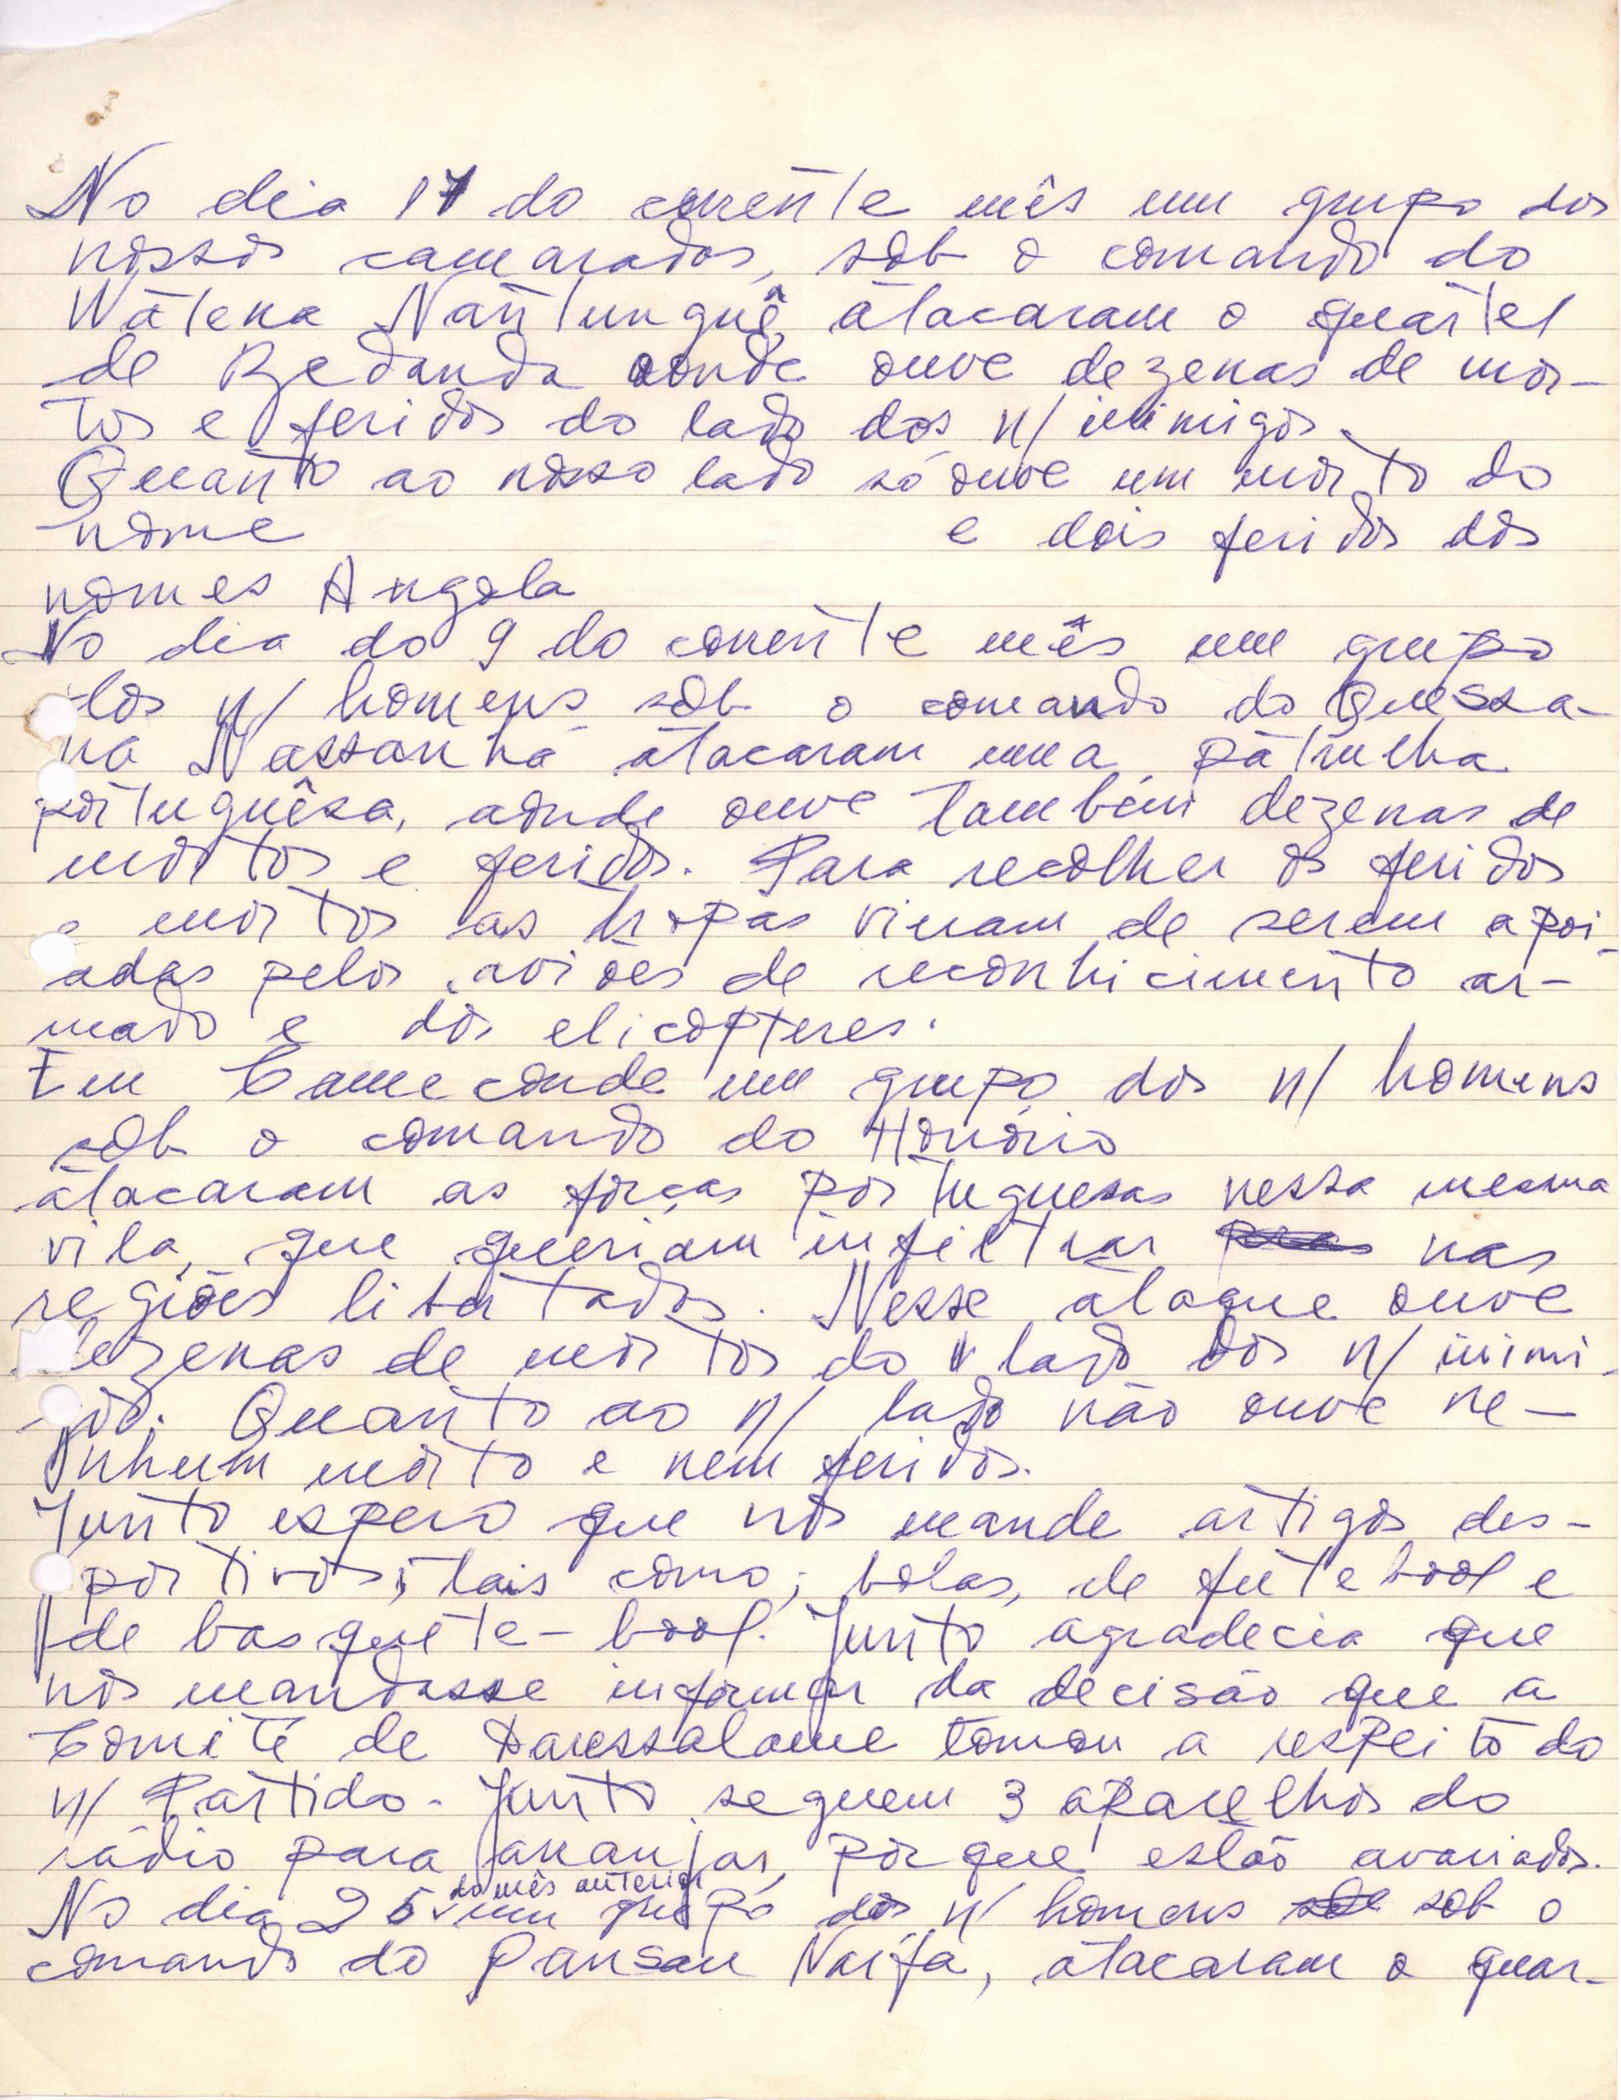 No dia 17 do corrente mês um grupo dos
nossos camarados, sob o comando do
Wátena Nantunguê atacaram o quartel
de Bedanda aonde ouve dezenas de mor-
tos e feridos do lado dos n/ inimigos.
Quanto ao nosso lado só ouve um morto do
nome e dois feridos dos
nomes Angola
No dia do 9 do corrente mês um grupo
dos n/ homens sob o comando do Quessa-
na Nassanha atacaram uma patrulha
portuguêsa, aonde ouve também dezenas de
mortos e feridos. Para recolher os feridos
e mortos as tropas viuam de serem apoi-
adas pelos aviões de reconhicimento ar-
mado e dos elicopteres.
Em Cameconde um grupo dos n/ homens
sob o comando do Honório
atacaram as forças portuguesas nessa mesma
vila, que queriam infiltrar nas
regiões libertados. Nesse ataque ouve
dezenas de mortos do lado dos n/ inimi-
gos. Quanto ao n/ lado não ouve ne-
nhum morto e nem feridos.
Junto espero que nos mande artigos des-
portivos, tais como; bolas, de futebool e
de basquete-bool. Junto agradecia que
nos mandasse informar da decisão que a
Comité de Daressalame tomou a respeito do
n/ Partido. Junto seguem 3 aparelhos do
rádio para arranjar, porque estão avariados.
No dia 25 do mês anterior um grupo dos n/ homens sob o
comando do Pansau Naifa, atacaram o quar-